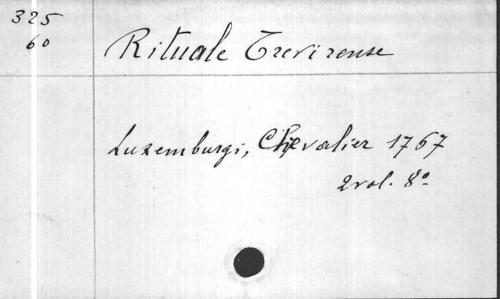 325
60
Rituale Trevirense
Luxemburgi, Chevalier 1767
2 vol. 8º